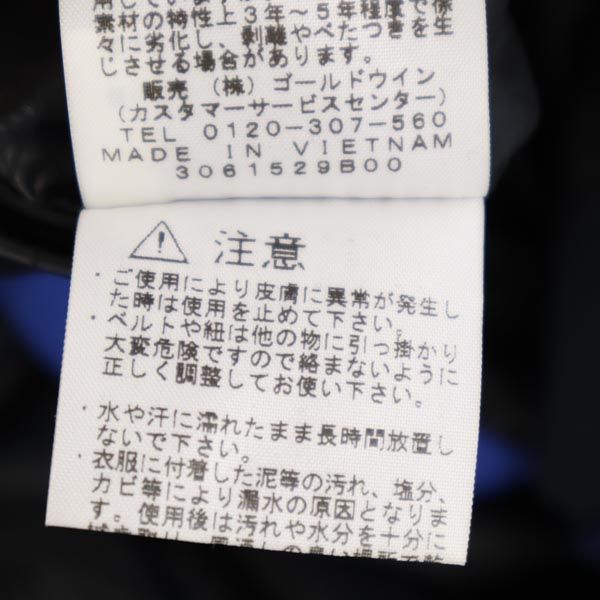 素材の特性上3年〜5年程度で徐
々に劣化し、剥離やべたつきを生
じさせる場合があります。
販売 (株)ゴールドウイン
(カスタマーサービスセンター)
TEL 0120-307-560
MADE IN VIETNAM
3061529B00
⚠ 注意
・ご使用により皮膚に異常が発生し
た時は使用を止めて下さい。
・ベルトや紐は他の物に引っ掛かり
大変危険ですので絡まないように
正しく調整してお使い下さい。
・水や汗に濡れたまま長時間放置し
ないで下さい。
・衣服に付着した泥等の汚れ、塩分、
カビ等により漏水の原因となりま
す。使用後は汚れや水分を十分に